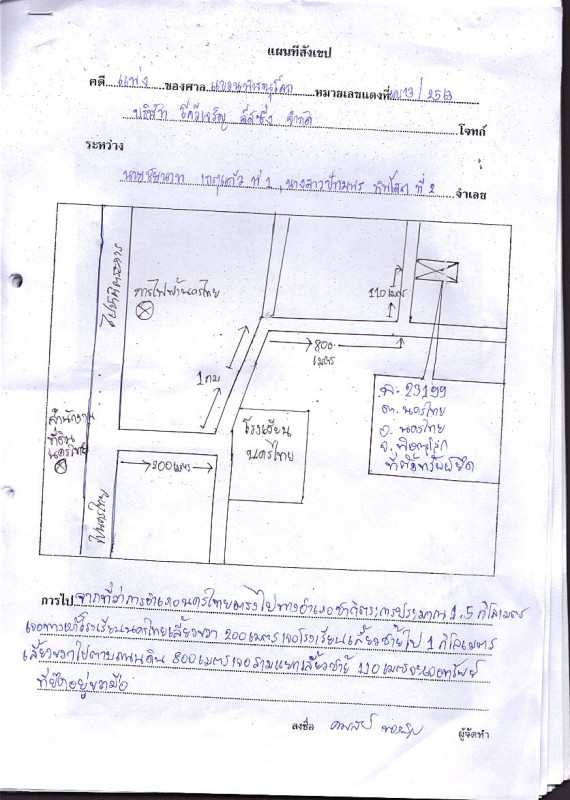 แผนที่สังเขป
คดี แพ่ง ของศาล แขวงพิษณุโลก หมายเลขแดงที่ ผบ13/2563
บริษัท ลีสซิ่ง จำกัด โจทก์
ระหว่าง
นายชัยนาท ที่ 1, นางสาวปัทมพร ที่ 2 จำเลย
ไปชาติตระการ
การไฟฟ้านครไทย
110 เมตร
800
เมตร
1 กม
ฉ. 23199
ต. นครไทย
อ. นครไทย
จ. พิษณุโลก
ที่ตั้งทรัพย์ยึด
สำนักงาน
ที่ดิน
นครไทย
โรงเรียน
นครไทย
200 เมตร
ไปนครไทย
การไป จากที่ว่าการอำเภอนครไทยตรงไปทางอำเภอชาติตระการประมาณ 1.5 กิโลเมตร
เจอทางเข้าโรงเรียนนครไทยเลี้ยวขวา 200 เมตร เจอโรงเรียนเลี้ยวซ้ายไป 1 กิโลเมตร
เลี้ยวขวาไปตามถนนดิน 800 เมตร เจอสามแยกเลี้ยวซ้าย 110 เมตรจะเจอทรัพย์
ที่ยึดอยู่ขวามือ
ลงชื่อ ผู้จัดทำ